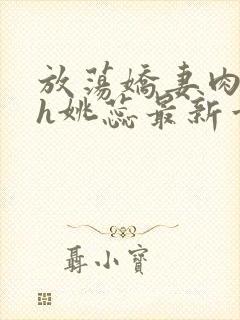 放荡嬌妻肉
h姚蕊最新
聶小寶